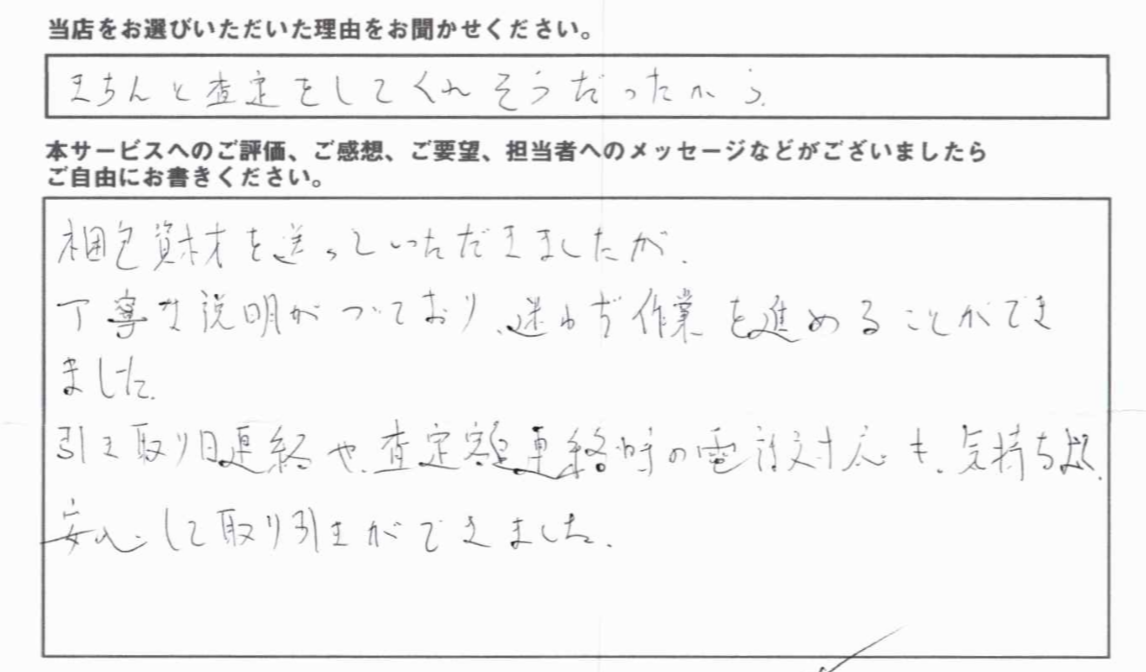 当店をお選びいただいた理由をお聞かせください。
きちんと査定をしてくれそうだったから。
本サービスへのご評価、ご感想、ご要望、担当者へのメッセージなどがございましたら
ご自由にお書きください。
梱包資材を送っていただきましたが、
丁寧な説明がついており、迷わず作業を進めることができ
ました。
引き取り日連絡や、査定額連絡時の電話対応も、気持ち よく、
安心して取り引きができました。